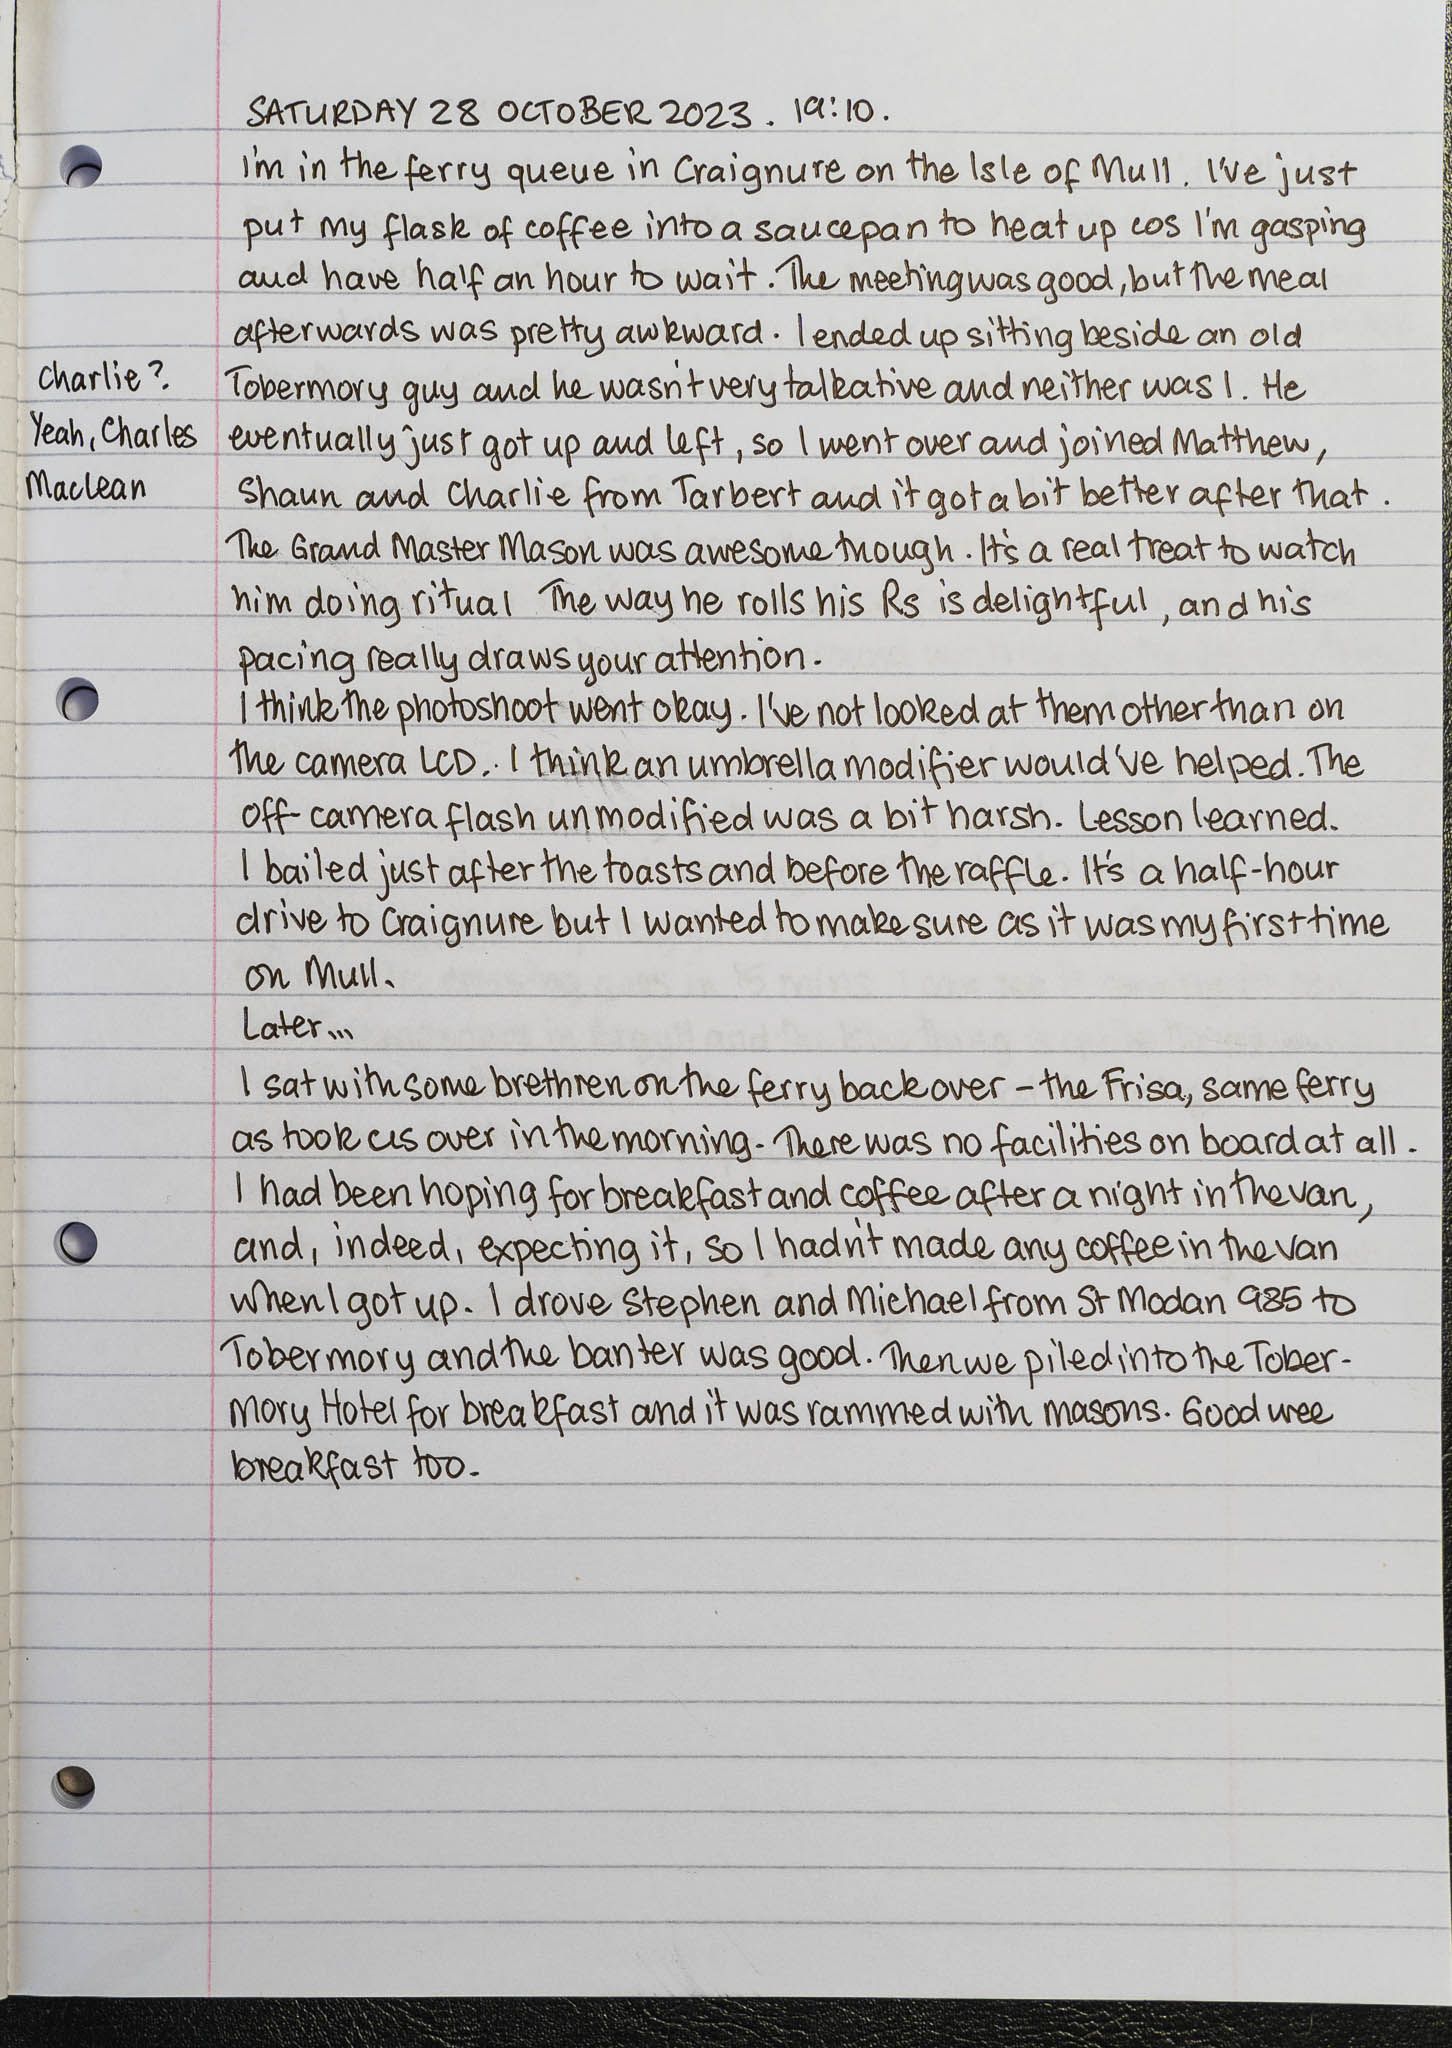 SATURDAY 28 OCTOBER 2023. 19:10.
I'm in the ferry queue in Craignure on the Isle of Mull. I've just
put my flask of coffee into a saucepan to heat up cos I'm gasping
and have half an hour to wait. The meeting was good, but the meal
afterwards was pretty awkward. I ended up sitting beside an old
Charlie?
Tobermory guy and he wasn't very talkative and neither was I. He
Yeah, Charles
eventually just got up and left, so I went over and joined Matthew,
Maclean
Shaun and Charlie from Tarbert and it got a bit better after that.
The Grand Master Mason was awesome though. It's a real treat to watch
him doing ritual The way he rolls his Rs is delightful, and his
pacing really draws your attention.
I think the photoshoot went okay. I've not looked at them other than on
the camera LCD.. I think an umbrella modifier would've helped. The
off-camera flash unmodified was a bit harsh. Lesson learned.
I bailed just after the toasts and before the raffle. It's a half-hour
drive to Craignure but I wanted to make sure as it was my first time
on Mull.
Later...
I sat with some brethren on the ferry back over – the Frisa, same ferry
as took us over in the morning. There was no facilities on board at all.
I had been hoping for breakfast and coffee after a night in the van,
and, indeed, expecting it, so I hadn't made any coffee in the van
when I got up. I drove Stephen and Michael from St Modan 985 to
Tobermory and the banter was good. Then we piled into the Tober-
mory Hotel for breakfast and it was rammed with masons. Good wee
breakfast too.